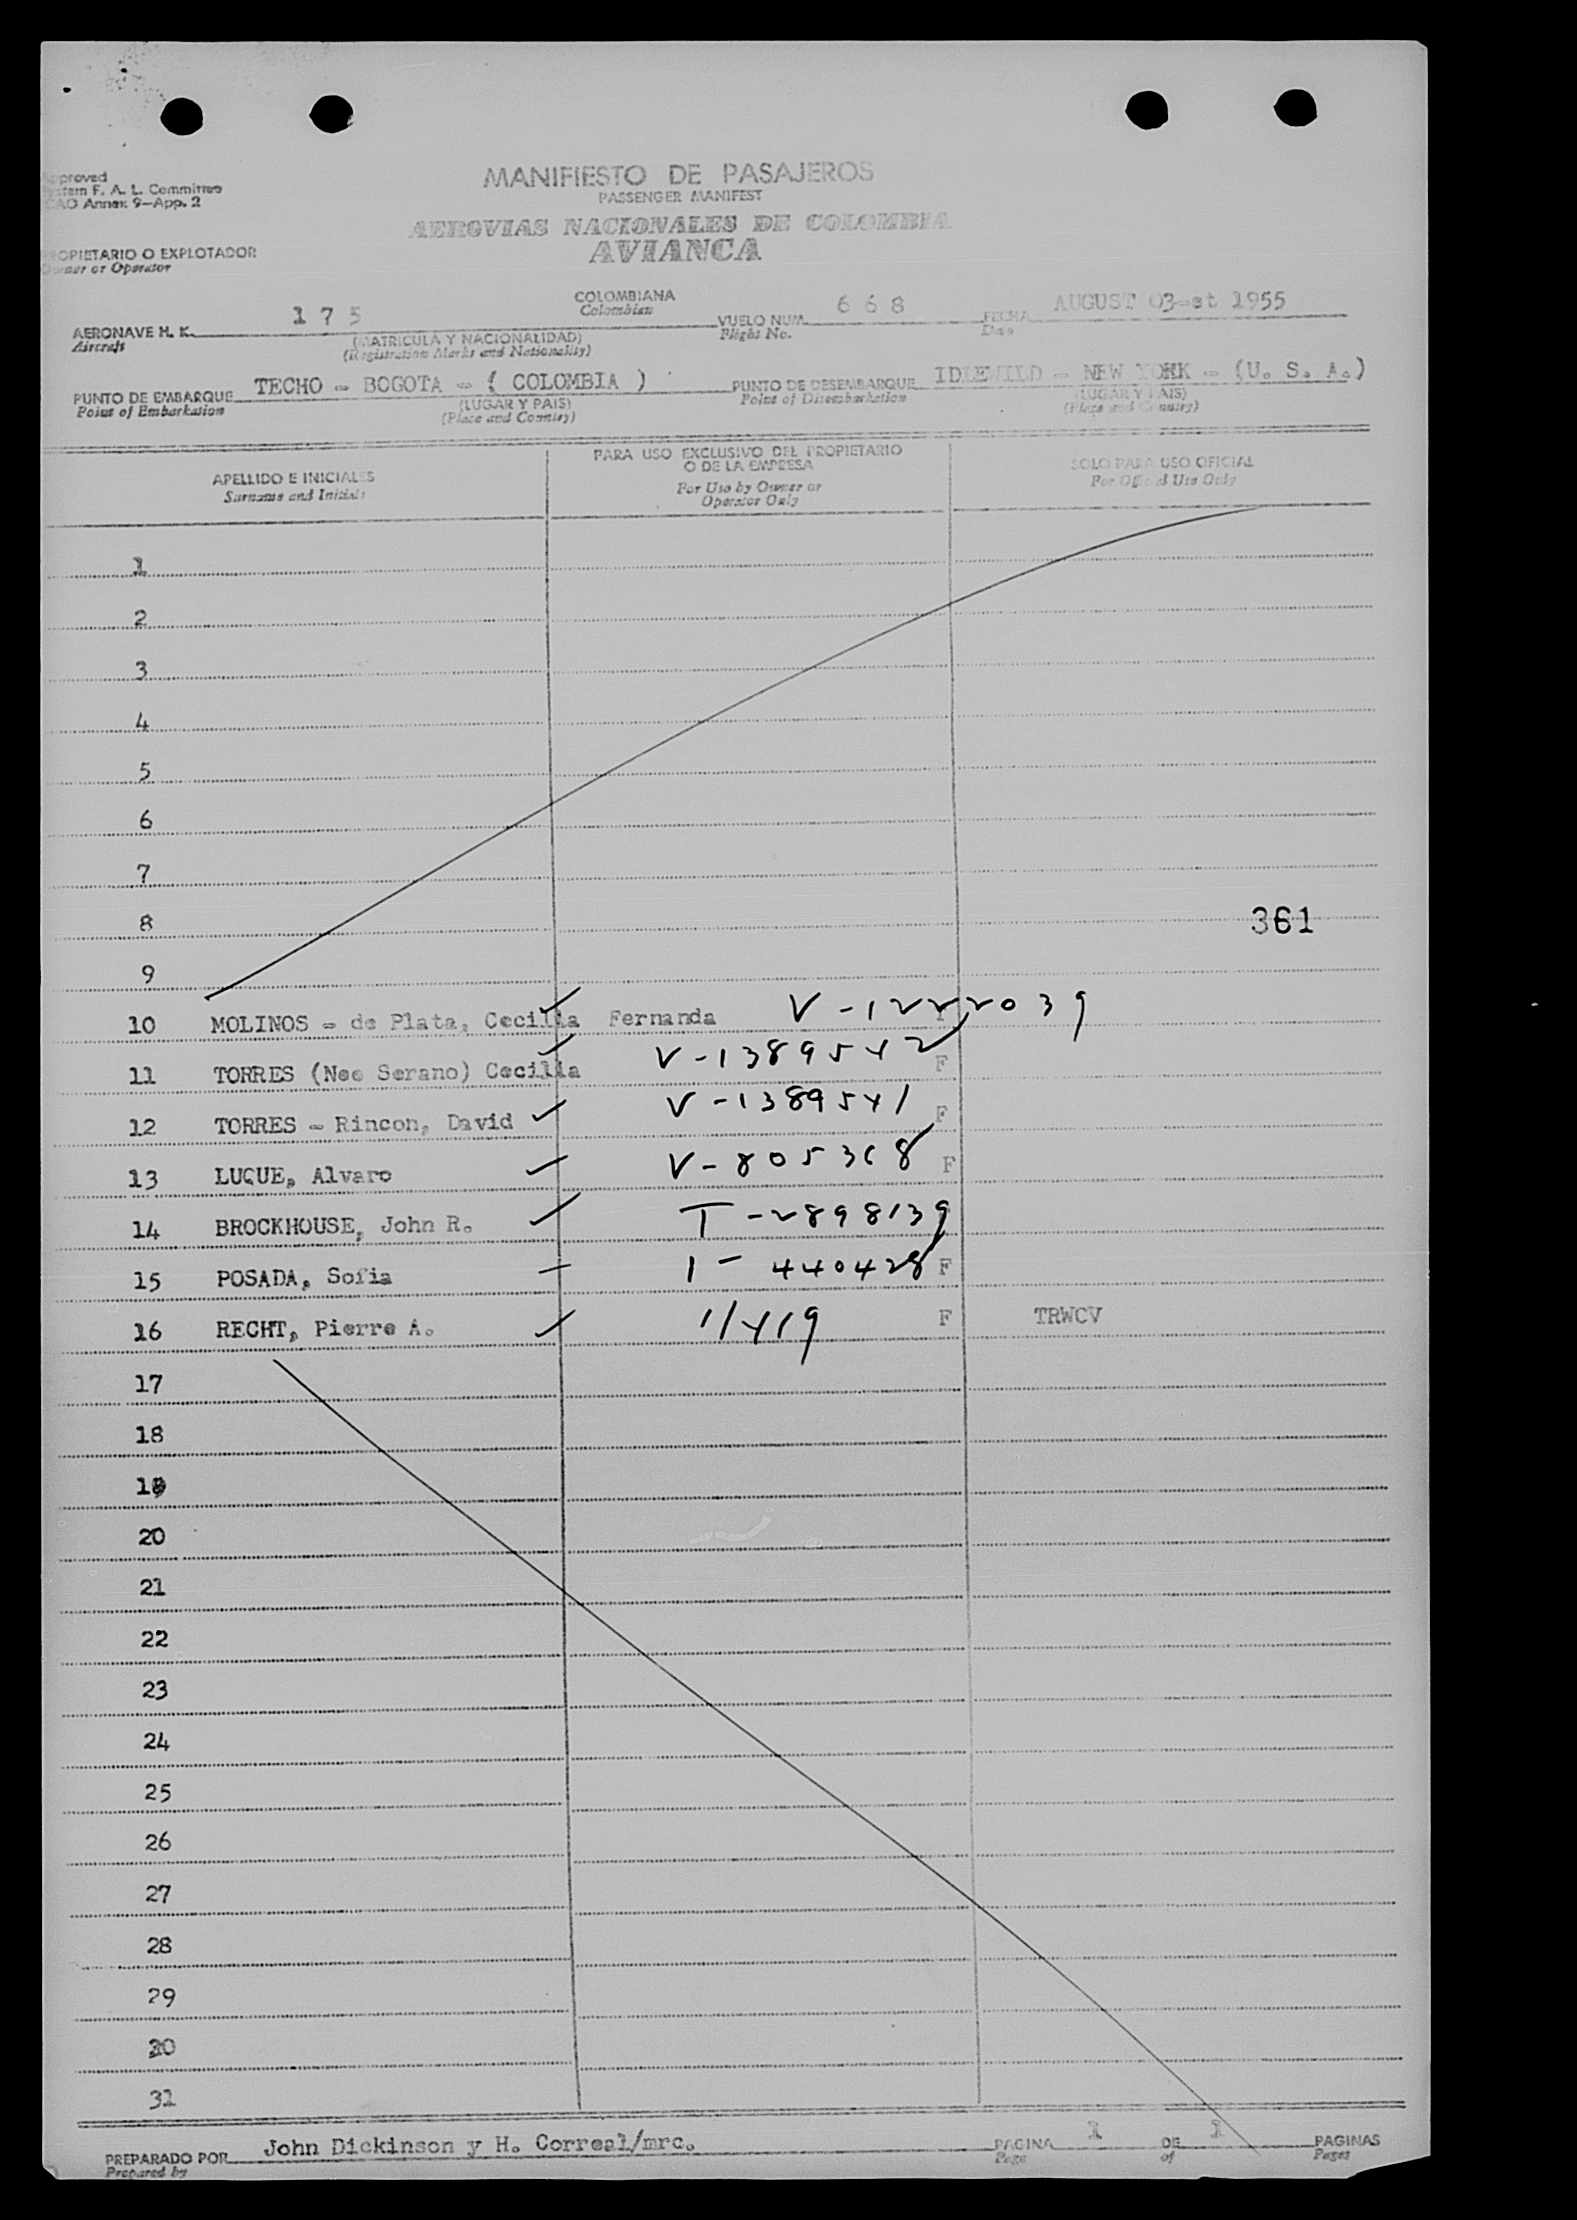 MANIFIESTO DE PASAJEROS
PASSENGER MANIFEST
F. A. L. Committee
Annex 9-App. 2
AEROVIAS NACIONALES DE COLOMBIA
AVIANCA
O EXPLOTADOR
or Operator
COLOMBIANA
Colombian
AERONAVE H. K. 175 VUELO NUM. 668 FECHA AUGUST 03-st 1955
Aircraft (MATRICULA Y NACIONALIDAD) Flight No. Date
(Registration Marks and Nationality)
PUNTO DE EMBARQUE TECHO - BOGOTA - ( COLOMBIA ) PUNTO DE DESEMBARQUE IDLEWILD - NEW YORK - (U. S. A.)
Point of Embarkation (LUGAR Y PAIS) Point of Disembarkation (LUGAR Y PAIS)
(Place and Country) (Place and Country)
APELLIDO E INICIALES PARA USO EXCLUSIVO DEL PROPIETARIO SOLO PARA USO OFICIAL
O DE LA EMPRESA
Surname and Initials For Use by Owner or For Official Use Only
Operator Only
1
2
3
4
5
6
7
8 361
9
10 MOLINOS - de Plata, Cecilia Fernanda V-1222039 F
11 TORRES (Nee Serano) Cecilia V-1389542 F
12 TORRES - Rincon, David V-1389541 F
13 LUQUE, Alvaro V-805368 F
14 BROCKHOUSE, John R. T-2898139
15 POSADA, Sofia 1-440428 F
16 RECHT, Pierre A. F TRWCV
17
18
19
20
21
22
23
24
25
26
27
28
29
30
31
PREPARADO POR John Dickinson y H. Correal/mrc. PAGINA 1 DE 1 PAGINAS
Prepared by Page of Pages